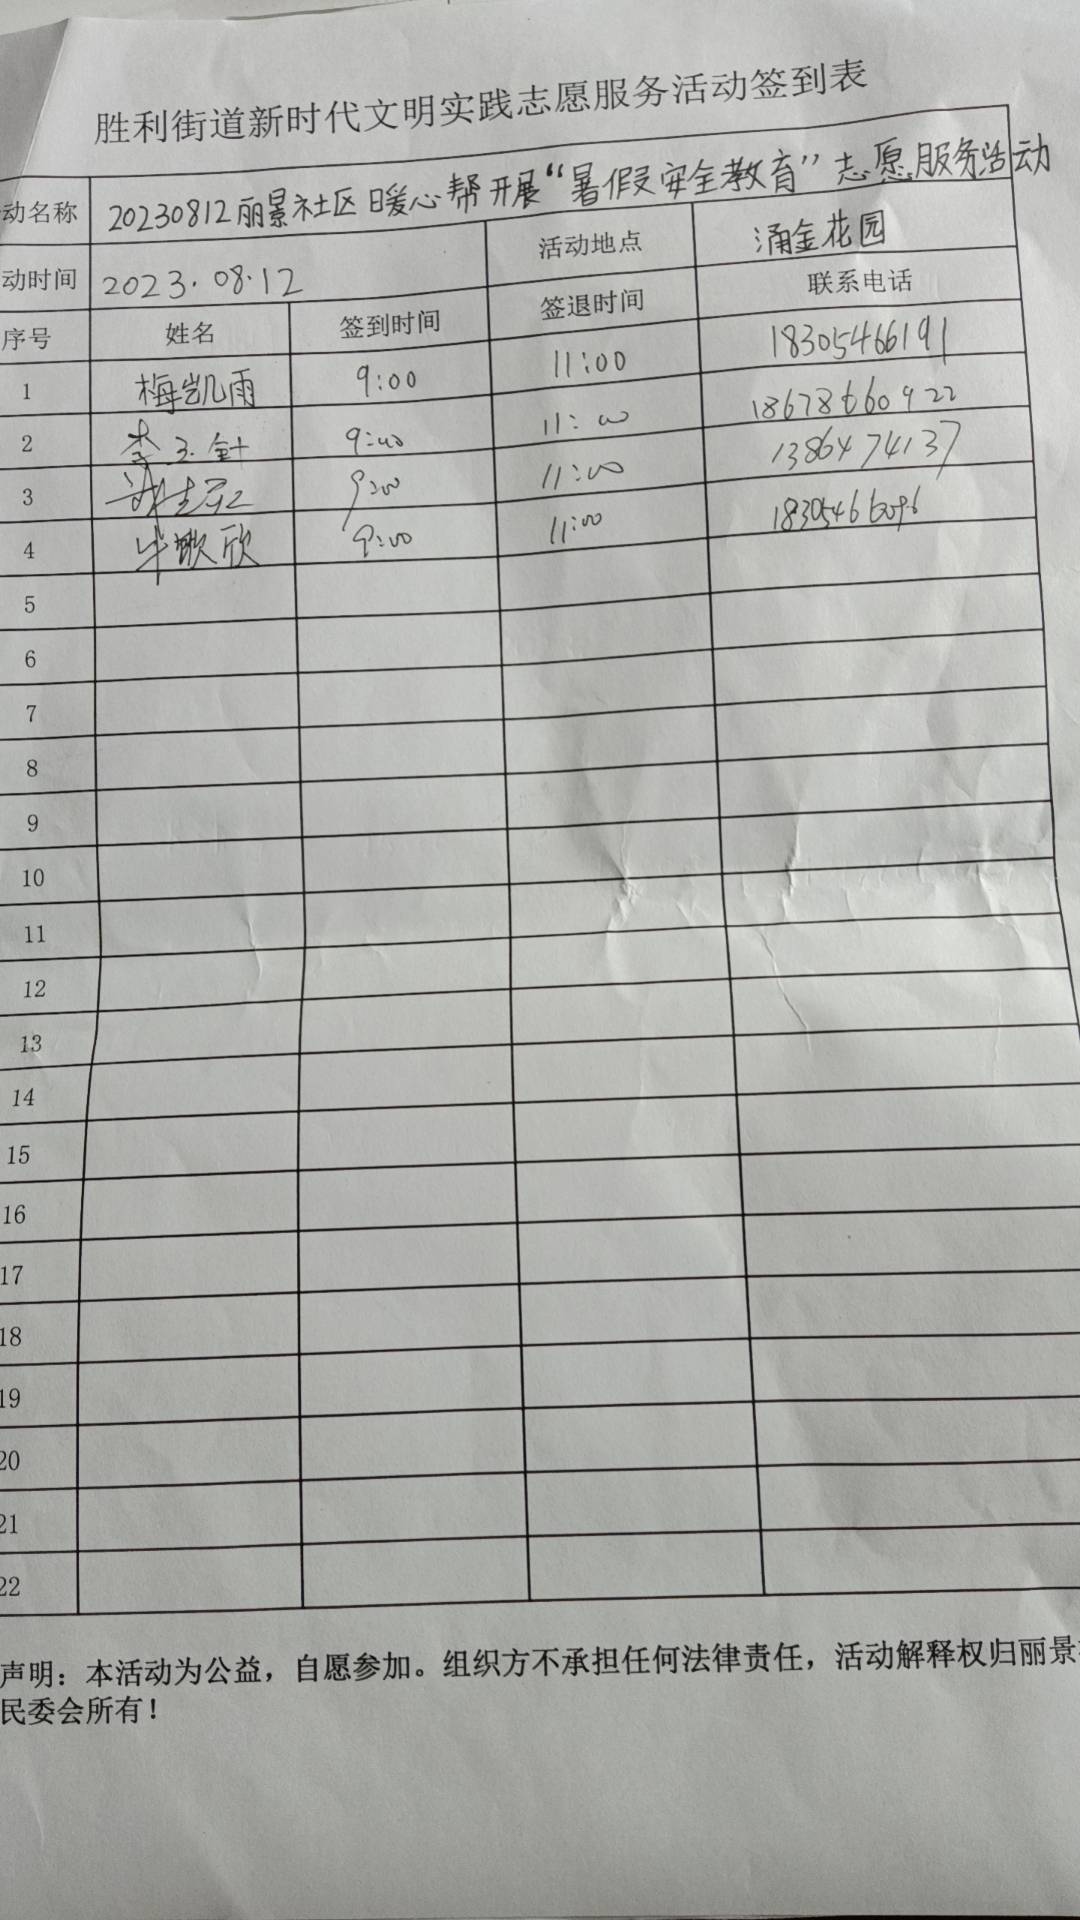 胜利街道新时代文明实践志愿服务活动签到表
动名称 20230812丽景社区暖心帮开展“暑假安全教育”志愿服务活动
动时间 2023.08.12 活动地点 涌金花园
序号 姓名 签到时间 签退时间 联系电话
1 梅凯雨 9:00 11:00 18305466191
2 李玉针 9:00 11:00 18678660922
3 9:00 11:00 1386474137
4 毕歌欣 9:00 11:00 18305466096
5
6
7
8
9
10
11
12
13
14
15
16
17
18
19
20
21
22
声明：本活动为公益，自愿参加。组织方不承担任何法律责任，活动解释权归丽景
民委会所有！